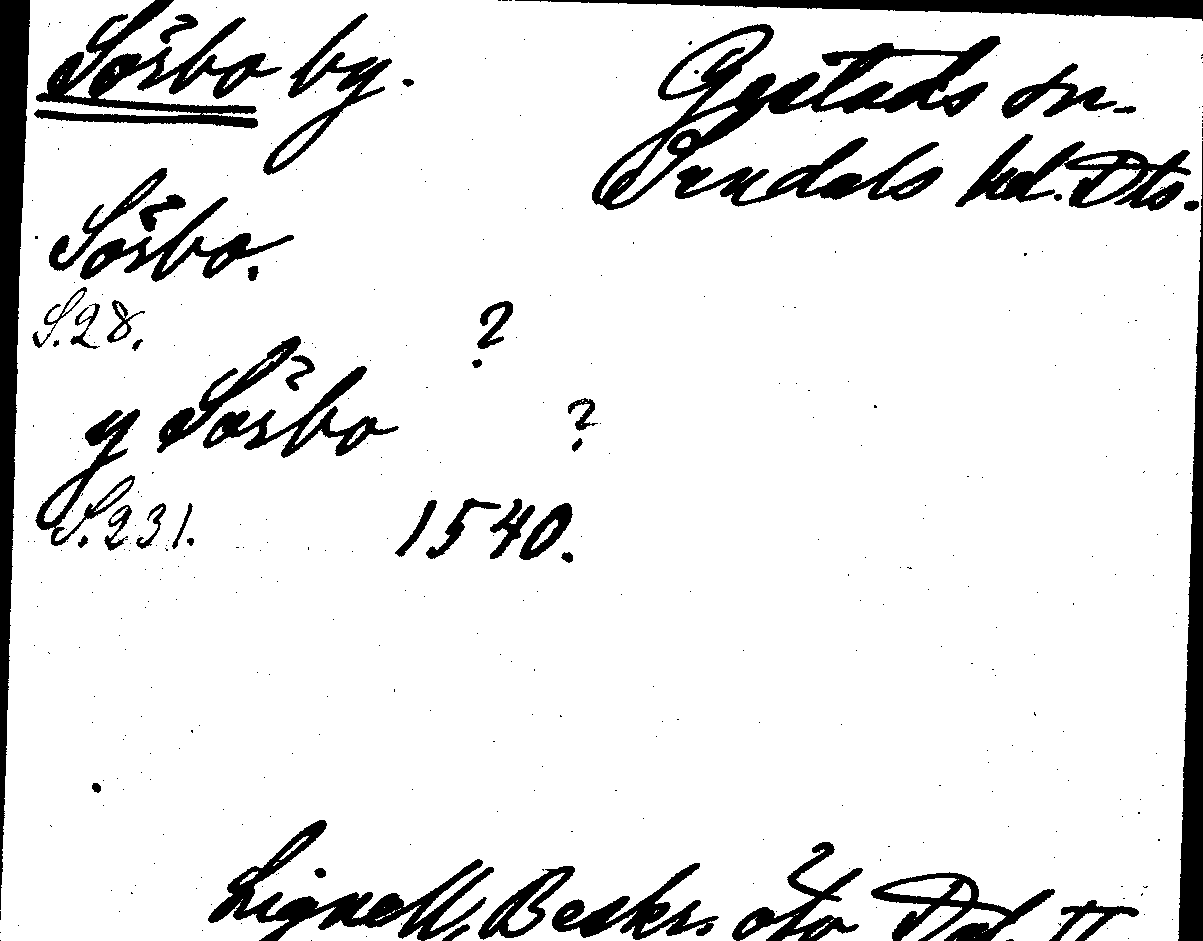 Sörbo by. Gestads sn.
Sundals hd. Dls.
Sörbo.
S.28. ?
y Sörbo ?
S.231. 1540.
Lignell, Beskr. öfv Dal. II